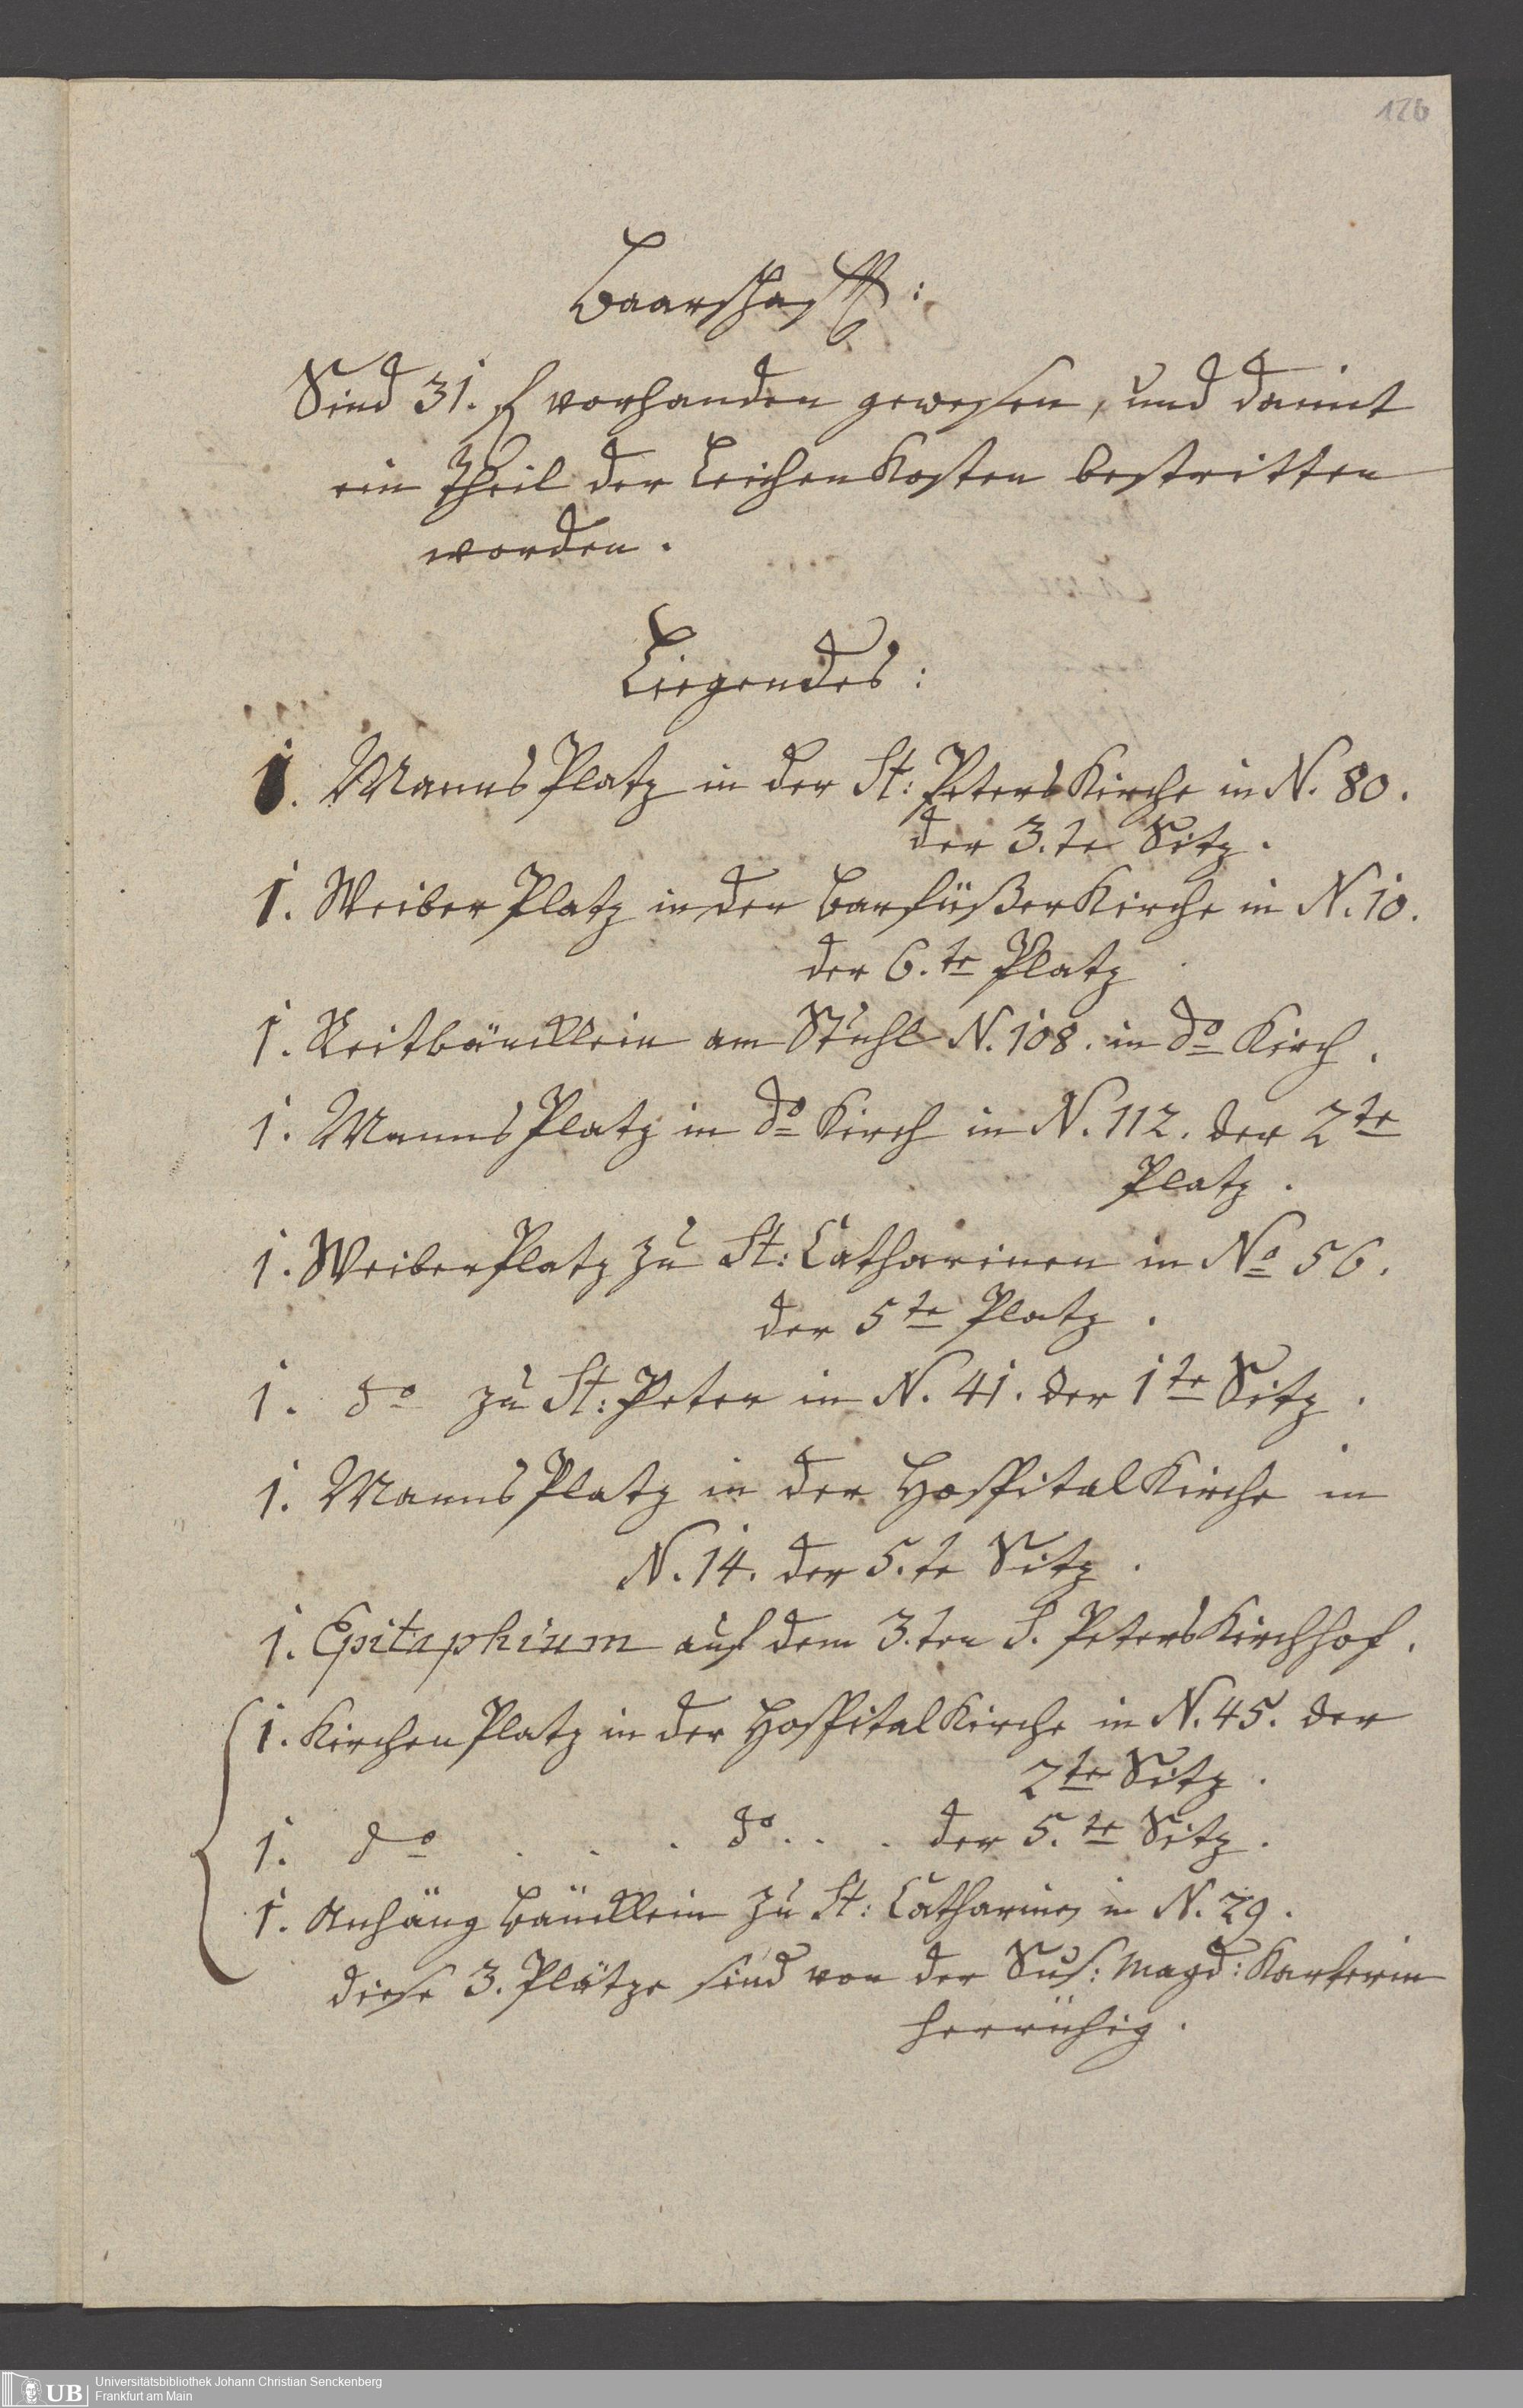 126
Baarschafft:
Sind 31. f vorhanden gewesen, und damit
ein Theil der Leichen Kosten bestritten
worden.
Liegendes:
1. Manns Platz in der St: Peters Kirche in N. 80.
der 3.te Sitz.
1. Weiber Platz in der Barfüßer Kirche in N. 10.
der 6.te Platz
1. Reitbäncklein am Stuhl N. 108. in do Kirch.
1. Manns Platz in do Kirch in N. 112. der 2te
Platz.
1. Weiber Platz zu St: Catharinen in No 56.
der 5te Platz.
1. do zu St: Peter in N. 41. der 1te Sitz.
1. Manns Platz in der Hospital Kirche in
N. 14. der 5.te Sitz.
1. Epitaphium auf dem 3.ten S. Peters Kirchhof.
1. Kirchen Platz in der Hospital Kirche in N. 45. der
2te Sitz.
1. do . . . do . . . der 5.te Sitz.
1. Anhäng Bäncklein zu St: Catharinen in N. 29.
diese 3. Plätze sind von der Sus: Magd:
UB
Universitätsbibliothek Johann Christian Senckenberg
Frankfurt am Main